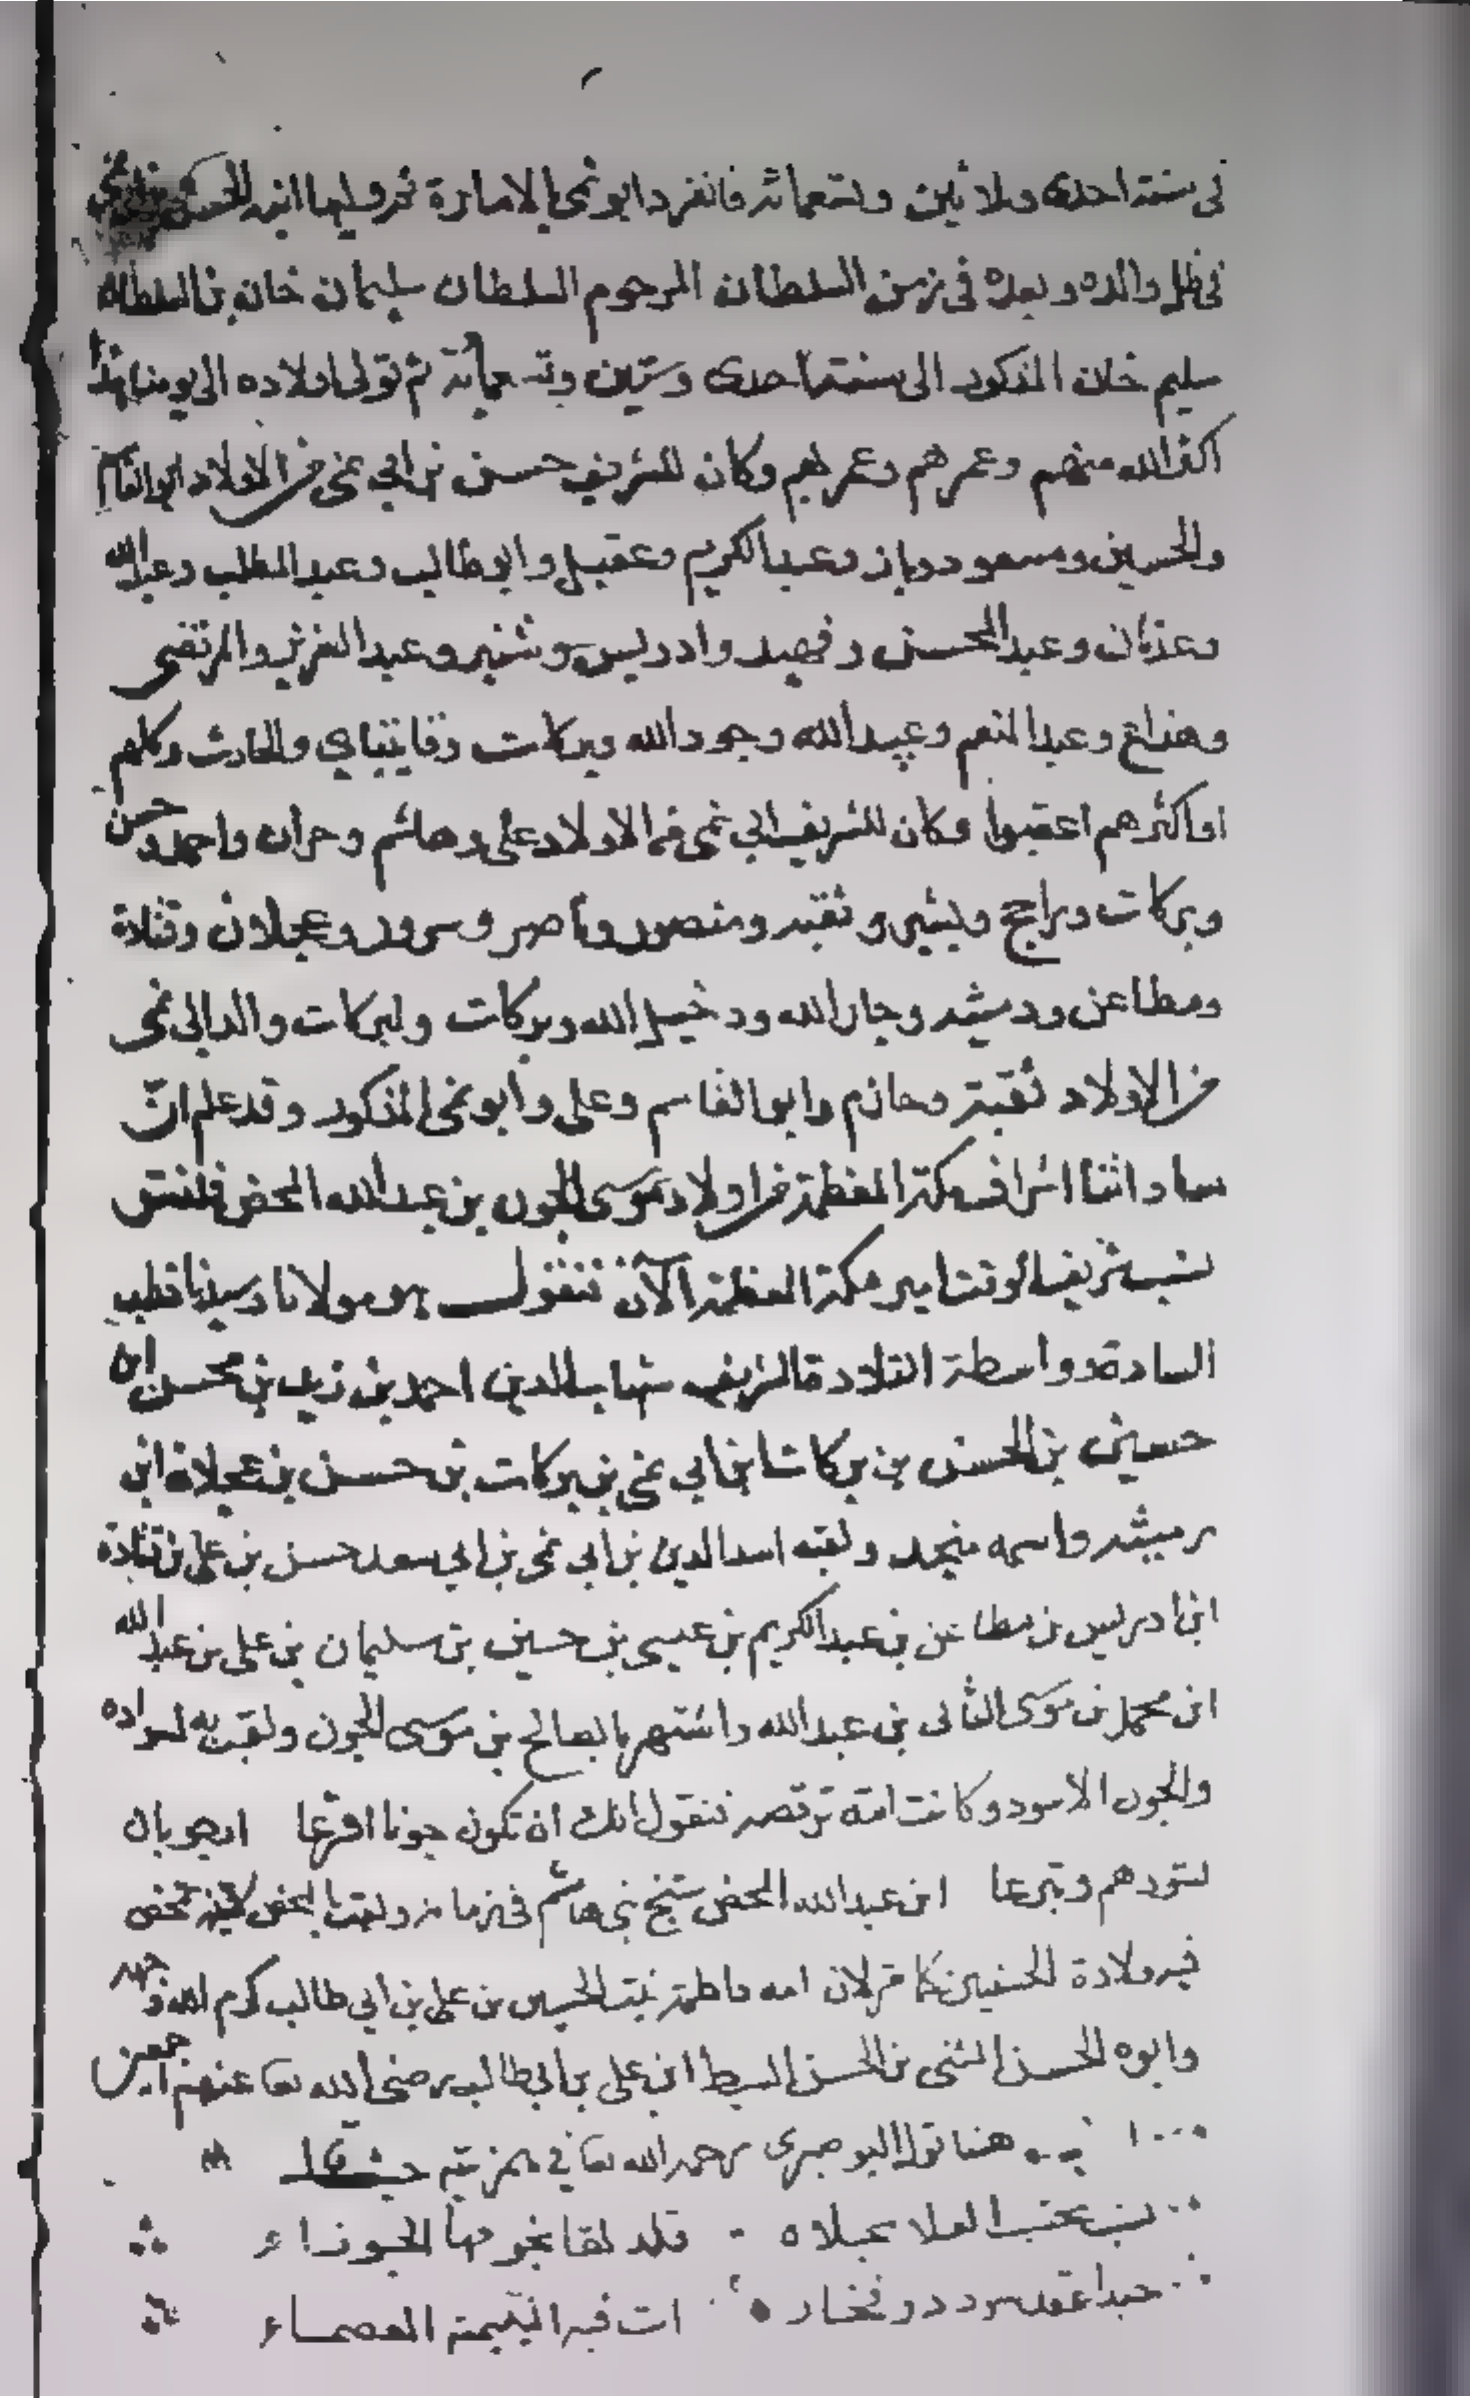 في سنة احدى وثلاثين وتسعمائة فانفرد ابو نمى بالامارة ثم وليها ابنه الحسن
في ظل والده وبعده في زمن السلطان المرحوم السلطان سليمان خان بن السلطان
سليم خان المذكور الى سنة احدى وستين وتسعمائة ثم تولى اولاده الى يومنا هذا
اكثر الله منهم وعمرهم وعمر بهم وكان للشريف حسن بن ابي نمى من الاولاد ابو القاسم
والحسين ومسعود وباز وعبد الكريم وعقيل وابو طالب وعبد المطلب وعبد الله
وعدنان وعبد المحسن وفهيد وادريس وشنبر وعبد العزيز والمرتضى
وهزاع وعبد المنعم وعبيد الله وجود الله وبركات وقايتباي والحارث وكلهم
او اكثرهم اعقبوا وكان للشريف ابي نمى من الاولاد علي وهاشم وحران واحمد وحسن
وبركات وراجح وبشير وثقبة ومنصور وناصر وسرور وعجلان وقتادة
ومطاعن ورميثه وجار الله ودخيل الله وبركات ولبركات والد ابي نمى
من الاولاد ثقبة وحازم وابو القاسم وعلى وأبو نمى المذكور وقد علم انّ
ساداتنا اشراف مكة المعظمة من اولاد موسى الجون بن عبد الله المحض
نسب شريف الوقت امير مكة المعظمة الآن فنقول هو مولانا وسيدنا قطب
السادة وواسطة القلادة الشريف شهاب الدين احمد بن زيد بن محسن ابن
حسين بن الحسن بن بركات ابن ابي نمى بن بركات بن حسن بن عجلان ابن
رميثه واسمه منجد ولقبه اسد الدين بن ابي نمى بن ابي سعد حسن بن على بن قتادة
ابن ادريس بن مطاعن بن عبد الكريم بن عيسى بن حسين بن سليمان بن على بن عبد الله
ابن محمد بن موسى الثاني بن عبد الله واشتهر بالصالح بن موسى الجون ولقب به لسواده
والجون الاسود وكانت امه ترقصه فتقول انك ان تكون جونا اقرعا ارجو بان
تسودهم وتبرعا ابن عبد الله المحض شيخ بني هاشم في زمانه ولقب بالمحض لانه تمحض
فيه ولادة الحسنين كما مر لان امه فاطمة بنت الحسين بن على بن ابي طالب كرم الله وجهه
وابوه الحسن المثنى بن الحسن السبط ابن على بن ابي طالب رضى الله تعا عنهم اجمعين
هنا قول البوصيرى رحمه الله تعا في همزيته حيث قال
نسب تحسب العلا بحلاه قلدتها نجومها الجوزاء
حبذا عقد سودد وفخار انت فيه اليتيمة العصماء